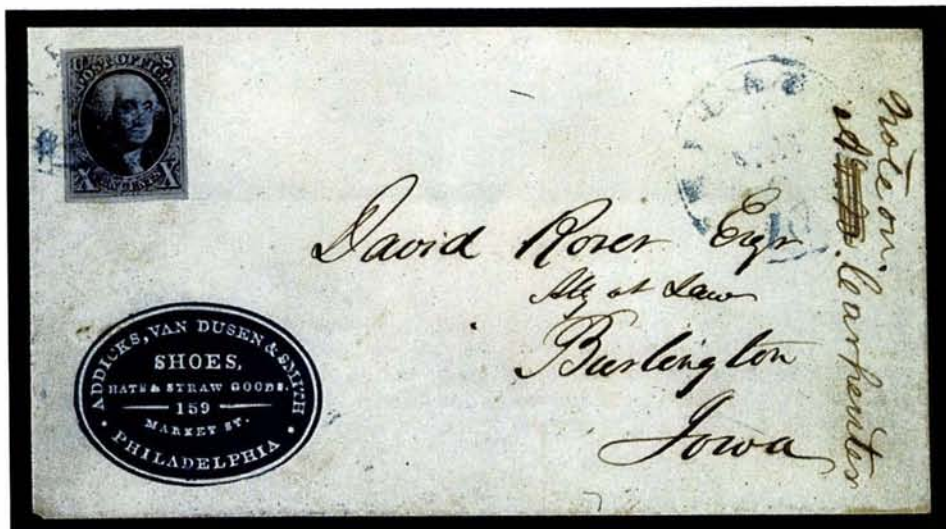 U S
POST OFFICE
X TEN CENTS X
ADDICKS, VAN DUSEN & SMITH
SHOES,
HATS & STRAW GOODS.
159
MARKET ST.
• PHILADELPHIA •
David Rorer Esqr
Atty at Law
Burlington
Iowa
Note on
Carpenter